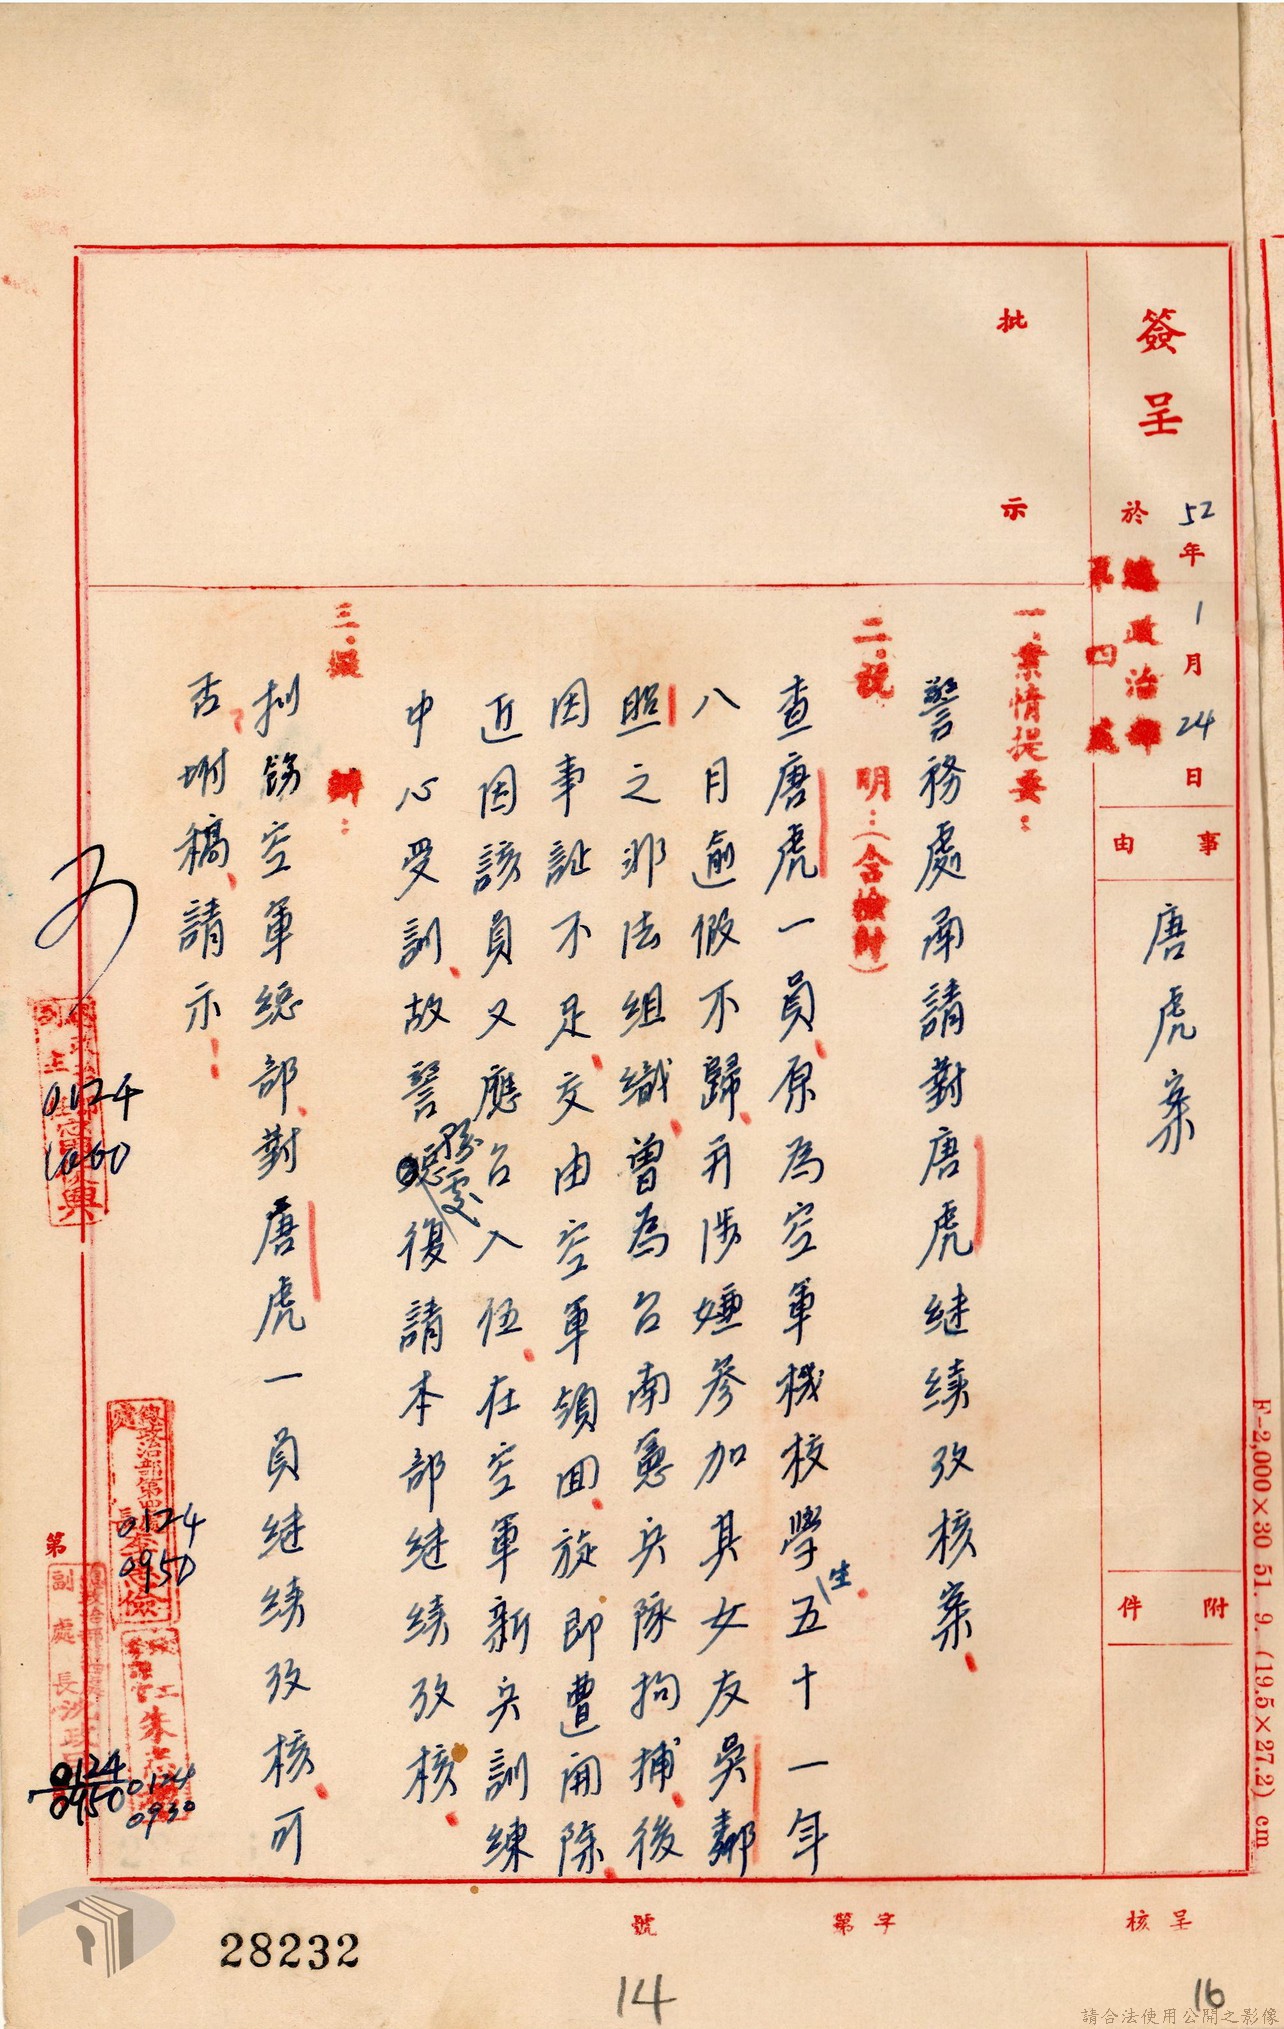 簽呈
52年1月24日
於總政治部
第四處
事由
唐虎案
附件
批示
一、案情提要：
警務處函請對唐虎繼续攷核案、
二、說明：（含檢討）
查唐虎一員、原為空軍機校學生、五十一年
八月逾假不歸、再涉嫌參加其女友吳鄰
照之非法組織、曾為台南憲兵隊拘捕、後
因事証不足、交由空軍領回、旋即遭開除、
近因該員又應召入伍、在空軍新兵訓練
中心受訓、故警務處復請本部繼续攷核、
三、擬辦：
拟飭空軍總部、對唐虎一員繼续攷核、可
否？附稿、請示！
0124
1000
總政治部第四處
0124
0950
副處長
0124
0950
0124
0930
第
呈核
字第
號
F-2,000×30 51. 9. (19.5×27.2) cm
28232
14
16
請合法使用公開之影像